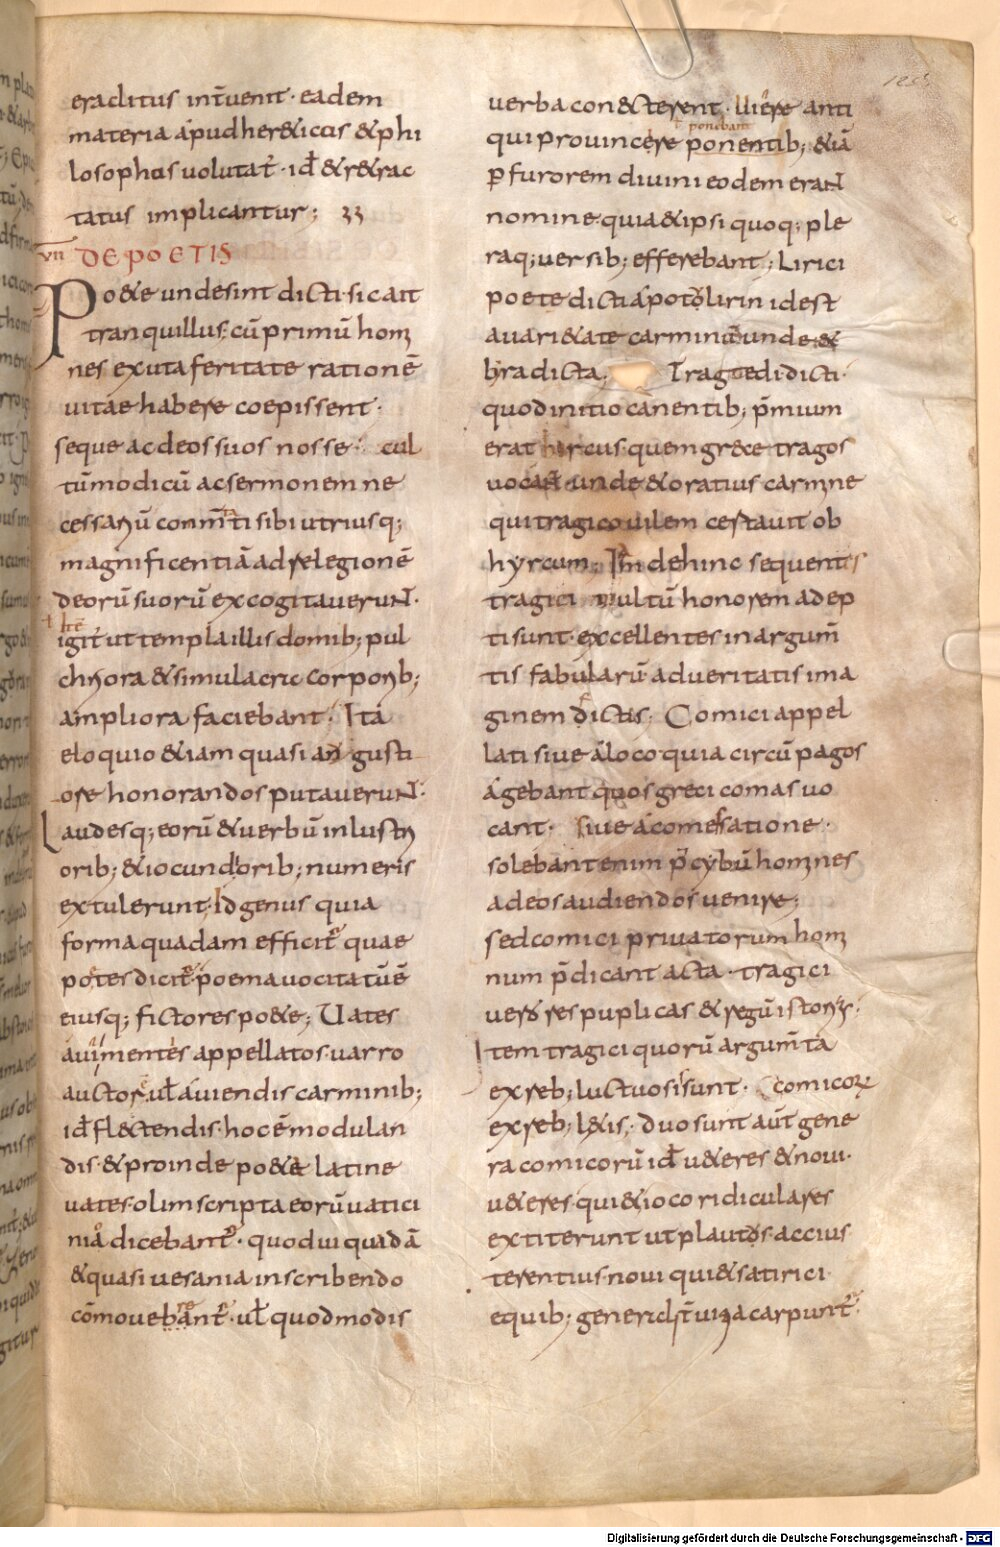 eraclitus int̄uenit· eadem
materia apud her&iccis & phi
losophos uolutat̄· id & r&rac
tatus implicantur;
VII DE POETIS
Po&e unde sint dicti· sic ait
tranquillus; cū primū homi
nes exuta feritate rationē
uitae habere coepissent·
seque ac deos suos nosse· cul
tū modicū ac sermonem ne
cessariū conm̄ti sibi utriusq;
magnificentiā ad relegionē
deorū suorū excogitauerunt·
igit̄ ut templa illis domib; pul
chriora & simulacra corporib;
ampliora faciebant· Ita
eloquio &iam quasi angusti
ore honorandos putauerunt·
Laudesq; eorū & uerbū inlustri
orib; & iocundiorib; numeris
extulerunt; Id genus quia
forma quadam efficit̄ quae
poetes dicit̄· poema uocitatū ē
eiusq; fictores po&e; Uates
a ui mentes appellatos uarro
auctor· uel a uiendis carminib;
id fl&tendis· hoc ē modulan
dis· & proinde po&e latine
uates olim scripta eorū uatici
nia dicebant̄· quod ui quadā
& quasi uesania in scribendo
cōmouebant̄· uel quod modis
uerba con&terent· Uiere anti
qui pro uincere ponentib; &iā
t ponebant
ꝑ furorem diuini eodem erant
nomine· quia & ipsi quoq; ple
raq; uersib; efferebant; Lirici
poete dicti apo tō lirin id est
a uari&ate carminū unde &
lyra dicta; Tragoedi dicti·
quod initio canentib; p̄mium
erat hircus· quem grece tragos
uocant· unde & oratius carmine
qui tragico uilem certauit ob
hyrcum· Iam dehinc sequentes
tragici multū honorem adep
ti sunt· excellentes in argum̄
tis fabularū ad ueritatis ima
ginem dictis; Comici appel
lati siue a loco quia circū pagos
agebant quos greci comas uo
cant· siue a comesatione·
solebant enim p̄ cybū homines
ad eos audiendos uenire;
sed comici priuatorum homi
num p̄dicant acta· tragici
uero res puplicas & regū istorias·
Item tragici quorū argum̄ta
ex reb; luctuosis sunt· comicorum
ex reb; l&is; duo sunt aut̄ gene
ra comicorū id u&eres & noui·
u&eres· qui & ioco ridiculares
extiterunt ut plautus· accius·
terentius· noui qui & satirici
e quib; generaliter uitia carpunt̄·